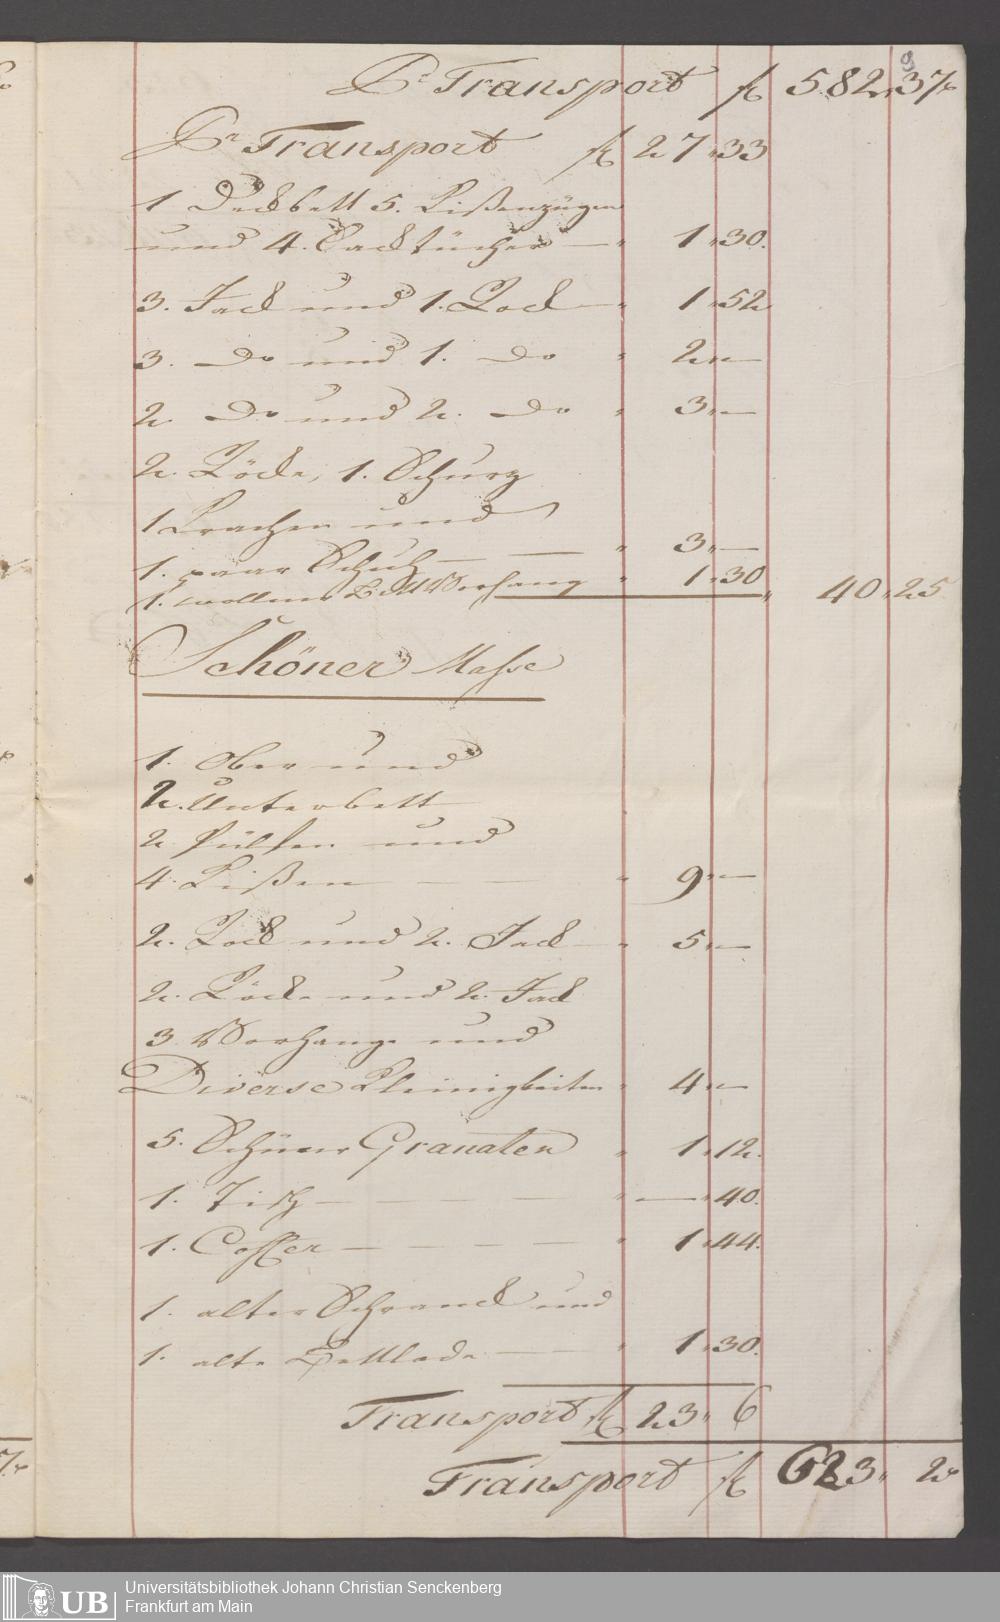 9
Pr Transport fl 582 " 37
Pr Transport fl 27 " 33
1 Deckbett 5. Kißenzügen
und 4. Sacktücher — " 1 " 30.
3. Jack und 1. Rock — " 1 " 52
3. Do und 1. Do " 2 " —
2. Do und 2. Do " 3 " —
2. Röcke, 1. Schurz
1 und
1. paar Schuh — — " 3 " —
1. wollener Bett Vorhang " 1 " 30 " 40 " 25
Schöner Masse
1. Ober und
2. Unterbett
2 Pülfen und
4. Kißen — — " 9 " —
2. Rock und 2. Jack — " 5 " —
2. Röcke und 2. Jack
3 Vorhange und
Diverse Kleinigkeiten " 4 " —
5. Schnür Granaten " 1 " 12.
1. Tisch — — — — " — " 40.
1. Coffer — — — — " 1 " 44.
1. alter Schranck und
1. alte Bettlade — — " 1 " 30.
Transport fl 23 " 6
Transport fl 623 " 2
UB Universitätsbibliothek Johann Christian Senckenberg
Frankfurt am Main